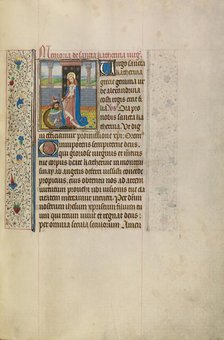 Memoria de sancta katherina virg
Virgo sancta
katherina
grecie gemma ur
be alexandrina
costi regis erat fi
lia Ora pro
nobis sancta ka
therina Ut dig
ni efficiamur promissione xpi Oremus
Omnipotens sempiterne deus
qui gloriose virginis et martiris
tue corpus beate katherine in montem
synay ab angelis deferri iussisti concede
propicius eius obtentu nos ad arcem
virtutum provehi ubi visionis tue
claritatem mereamur intueri Per dnm
nostrum ihesum xpristum filium tu
um qui tecum vivit et regnat deus
per omnia secula seculorum Amen